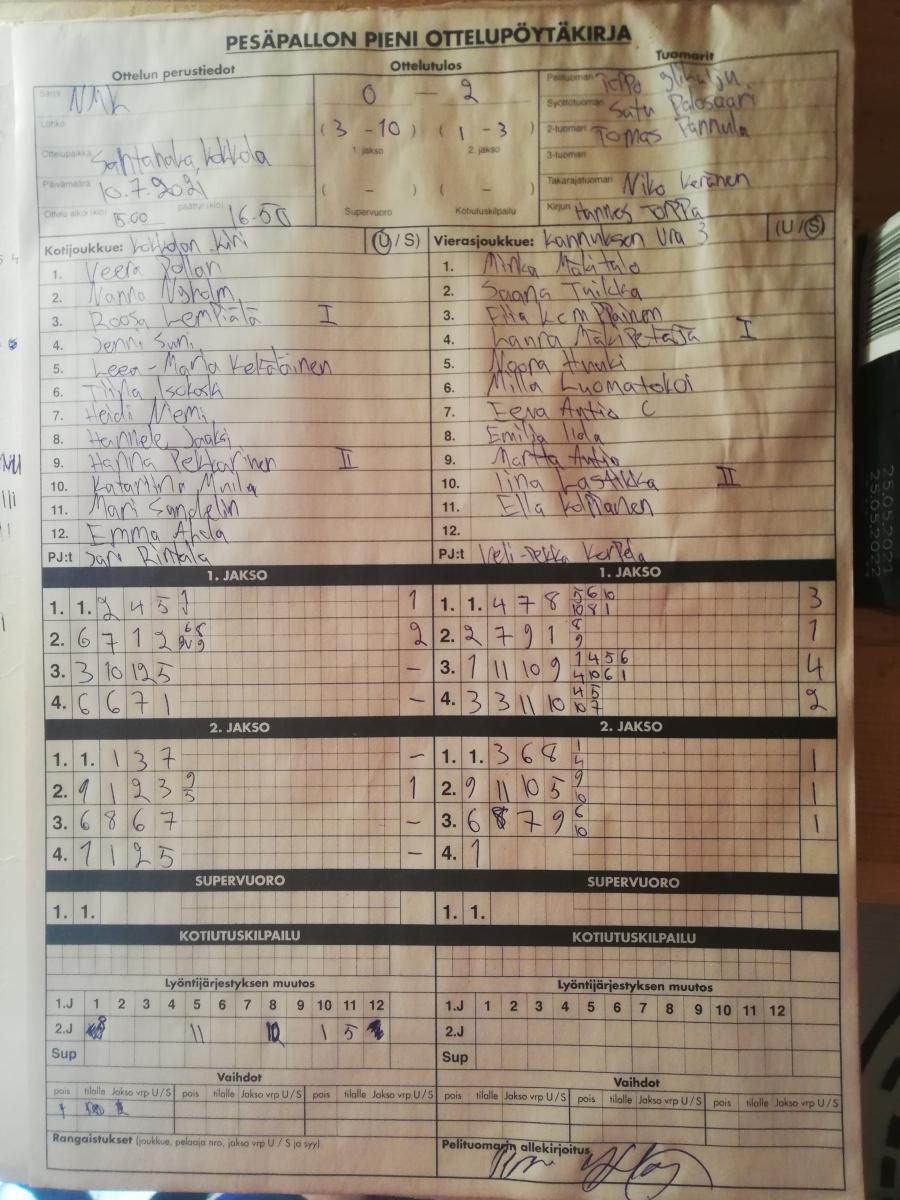 PESÄPALLON PIENI OTTELUPÖYTÄKIRJA
Ottelun perustiedot
Ottelutulos
Tuomarit
Sarja
0 — 2
Pelituomari
Lohko
( 3 - 10 ) ( 1 - 3 )
1. jakso 2. jakso
Syöttötuomari Satu Palosaari
2-tuomari Tomas Pannula
3-tuomari
Ottelupaikka Santahaka, Kokkola
Päivämäärä 10.7.2021
( - ) ( - )
Takarajatuomari Niko Keränen
Ottelu alkoi (klo) 15.00 päättyi (klo) 16.50
Supervuoro Kotiutuskilpailu
Kirjuri Hannes Torppa
Kotijoukkue: Kokkolan Kiri (U / S)
1. Veera Pollari
2. Nanna Nyholm
3. Roosa Lempiälä I
4. Jenni Suni
5. Leea-Maria Keltäläinen
6. Tiina Isokoski
7. Heidi Niemi
8. Hannele Jaaksi
9. Hanna Pekkarinen II
10. Katariina Muila
11. Mari Sandelin
12. Emma Ahola
PJ:t Jari Rintala
Vierasjoukkue: Kannuksen Ura 3 (U / S)
1. Minka Mäkitalo
2. Saana Tuikka
3. Elia Komppainen
4. Lanra Mäkipetäjä I
5. Noora Huuki
6. Milla Luomatokoi
7. Eeva Antio C
8. Emilia Iida
9. Martta Antio
10. Iina Lastikka II
11. Ella Kolpianen
12.
PJ:t Veli-Pekka
1. JAKSO
1. 1. 2 4 5 1
2. 6 7 1 2 2
3. 3 10 12 5 –
4. 6 6 7 1 –
1. JAKSO
1. 1. 4 7 8 5 6 10 3
10 8 1
2. 2 7 9 1 8 1
9
3. 1 11 10 9 1 4 5 6 4
4 10 6 1
4. 3 3 11 10 4 5 2
10 7
2. JAKSO
1. 1. 1 3 7 –
2. 9 1 2 3 9 1
5
3. 6 8 6 7 –
4. 1 1 2 5 –
2. JAKSO
1. 1. 3 6 8 1 1
4
2. 9 11 10 5 9 1
10
3. 6 8 7 9 6 1
10
4. 1
SUPERVUORO
1. 1.
SUPERVUORO
1. 1.
KOTIUTUSKILPAILU
KOTIUTUSKILPAILU
Lyöntijärjestyksen muutos
1.J 1 2 3 4 5 6 7 8 9 10 11 12
2.J 11 1 5
Sup
Lyöntijärjestyksen muutos
1.J 1 2 3 4 5 6 7 8 9 10 11 12
2.J
Sup
Vaihdot
pois tilalle Jakso vrp U / S pois tilalle Jakso vrp U / S pois tilalle Jakso vrp U / S
Vaihdot
pois tilalle Jakso vrp U / S pois tilalle Jakso vrp U / S pois tilalle Jakso vrp U / S
Rangaistukset (joukkue, pelaaja nro, jakso vrp U / S ja syy)
Pelituomarin allekirjoitus
25.05.2021
25.05.2022